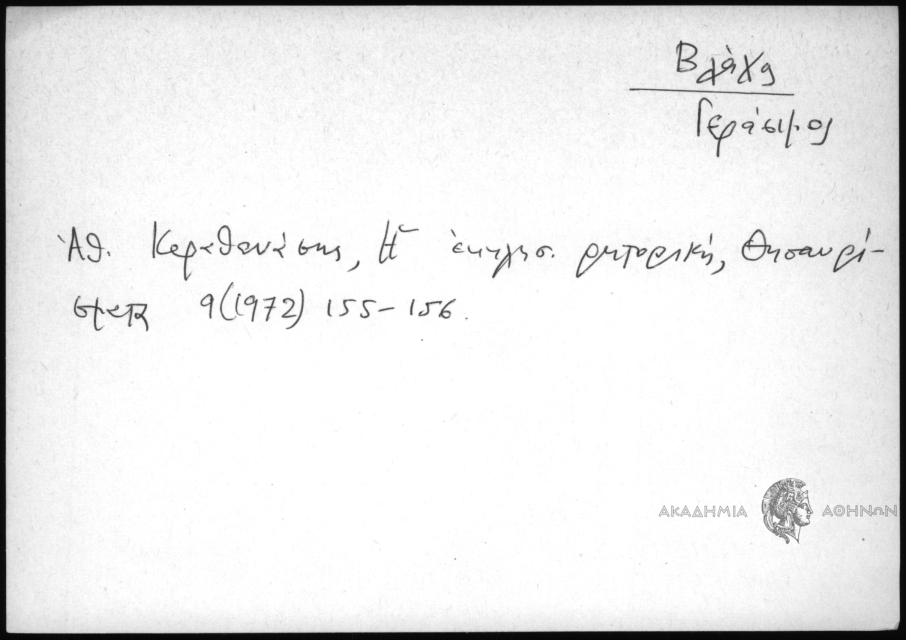 Βλάχο
Γεράσιμος
Ἀθ. Καραθανάσης, Ἡ ἐκκλησ. ρητορική, Θησαυρί-
σματα 9(1972) 155-156.
ΑΚΑΔΗΜΙΑ ΑΘΗΝΩΝ